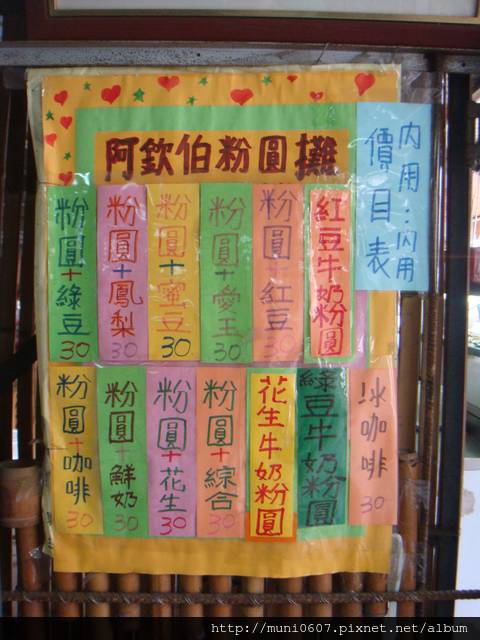 阿欽伯粉圓攤
內用：內用
價目表
粉圓+綠豆 30
粉圓+鳳梨 30
粉圓+蜜豆 30
粉圓+愛玉 30
粉圓+紅豆 30
紅豆牛奶粉圓
粉圓+咖啡 30
粉圓+鮮奶 30
粉圓+花生 30
粉圓+綜合 30
花生牛奶粉圓
綠豆牛奶粉圓
冰咖啡 30
http://muni0607.pixnet.net/album